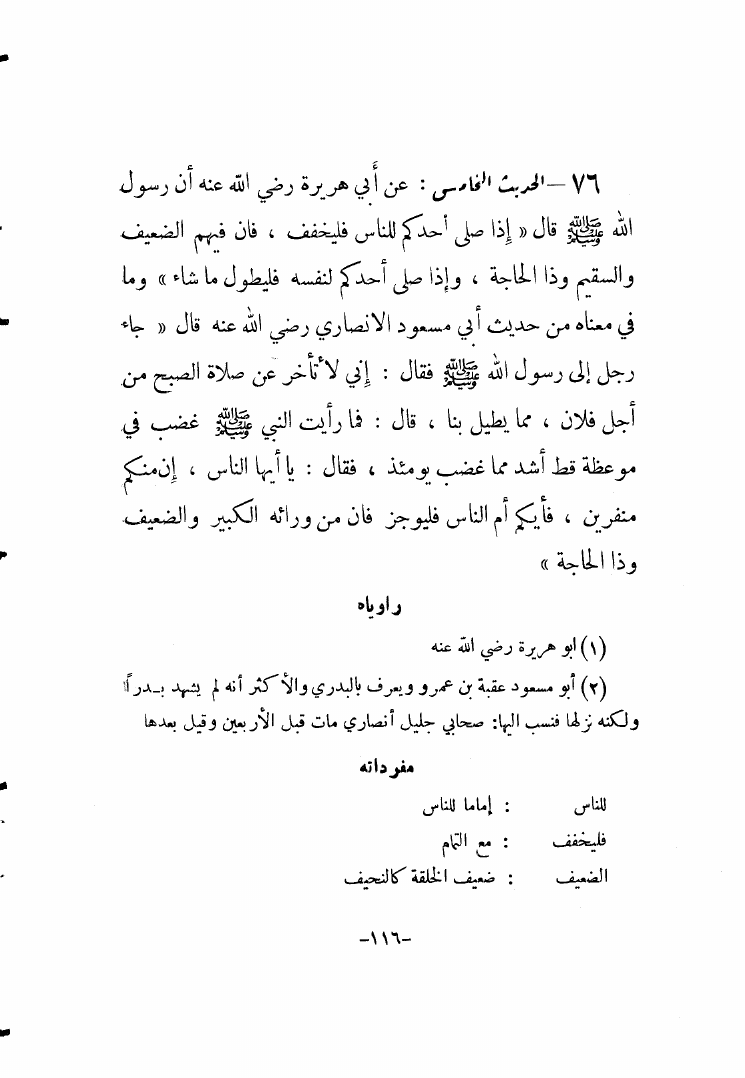 ٧٦ – الحديث الخامس : عن أبي هريرة رضي الله عنه أن رسول
الله ﷺ قال « إذا صلى أحدكم للناس فليخفف ، فان فيهم الضعيف
والسقيم وذا الحاجة ، وإذا صلى أحدكم لنفسه فليطول ما شاء » وما
في معناه من حديث أبي مسعود الانصاري رضي الله عنه قال « جاء
رجل إلى رسول الله ﷺ فقال : إني لأتأخر عن صلاة الصبح من
أجل فلان ، مما يطيل بنا ، قال : فما رأيت النبي ﷺ غضب في
موعظة قط أشد مما غضب يومئذ ، فقال : يا أيها الناس ، إن منكم
منفرين ، فأيكم أم الناس فليوجز فان من ورائه الكبير والضعيف
وذا الحاجة »
راوياه
(١) ابو هريرة رضي الله عنه
(٢) أبو مسعود عقبة بن عمرو ويعرف بالبدري والأكثر أنه لم يشهد بـدراً
ولكنه نزلها فنسب اليها: صحابي جليل أنصاري مات قبل الأربعين وقيل بعدها
مفرداته
للناس : إماما للناس
فليخفف : مع التمام
الضعيف : ضعيف الخلقة كالنحيف
-١١٦-